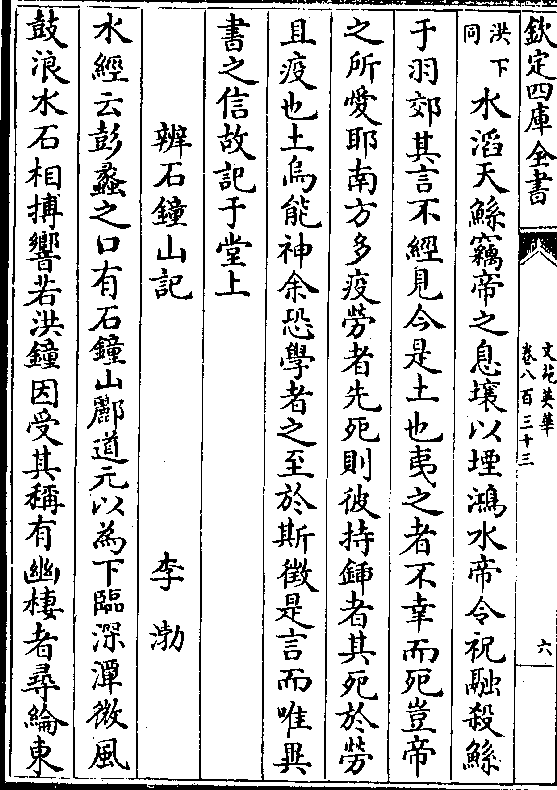 欽定四庫全書
文苑英華
卷八百三十三
六
洪下
同
水滔天鯀竊帝之息壤以堙鴻水帝令祝融殺鯀
于羽郊其言不經見今是土也夷之者不幸而死豈帝
之所愛耶南方多疫勞者先死則彼持鍤者其死於勞
且疫也土烏能神余恐學者之至於斯徵是言而唯異
書之信故記于堂上
辨石鐘山記
李渤
水經云彭蠡之口有石鐘山酈道元以為下臨深潭微風
鼓浪水石相搏響若洪鐘因受其稱有幽棲者尋綸東